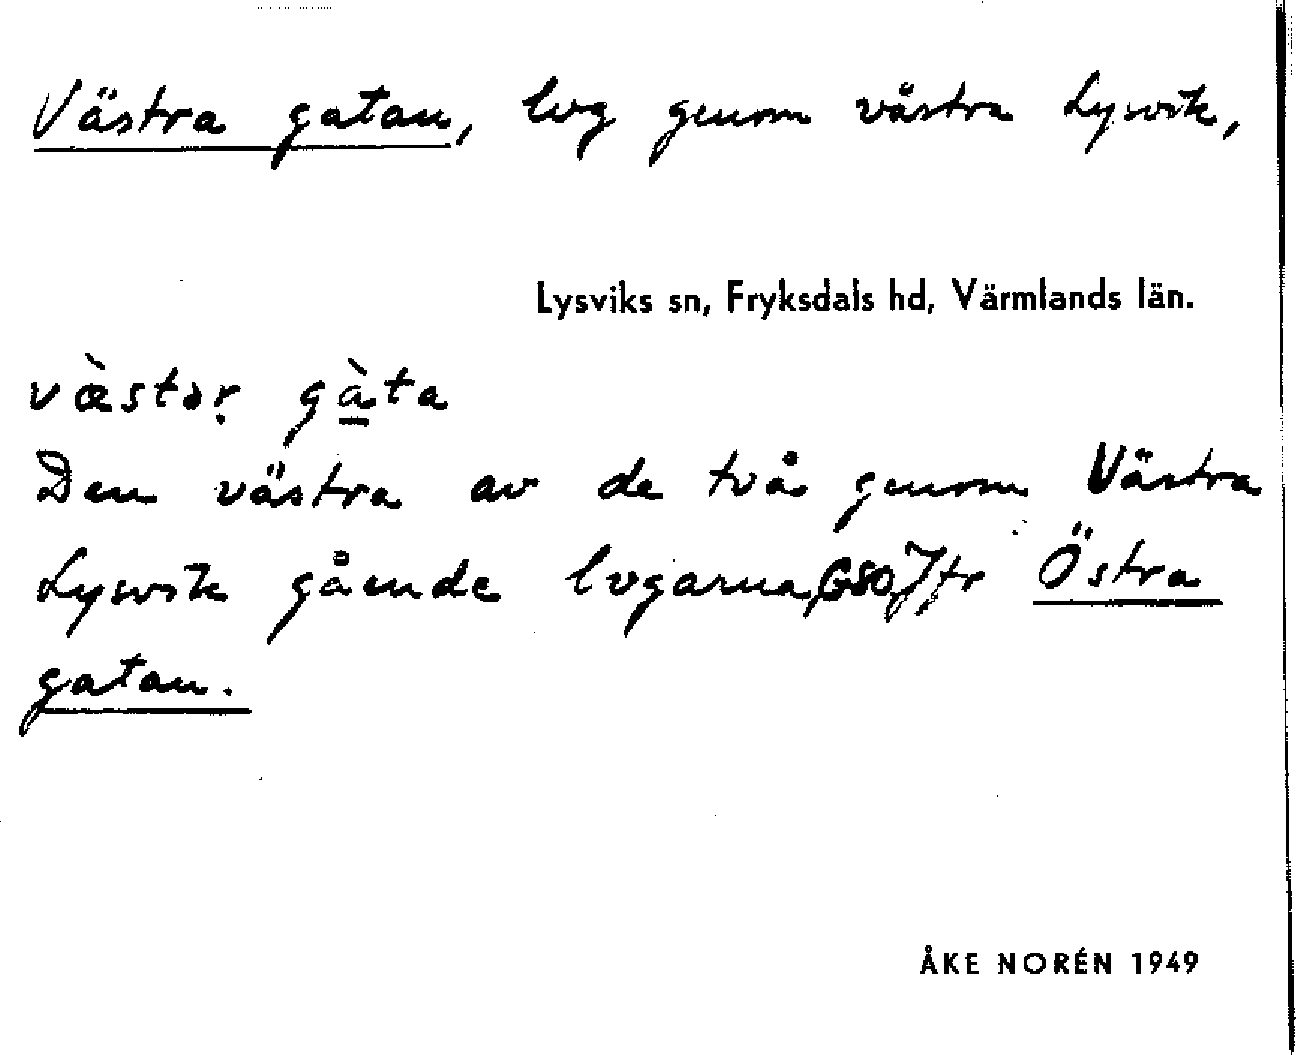 Västra gatan, lvg genom västra Lysvik,
Lysviks sn, Fryksdals hd, Värmlands län.
væ̀stər gàta
Den västra av de två genom Västra
Lysvik gående lvgarna, GSO Jfr Östra
gatan.
ÅKE NORÉN 1949